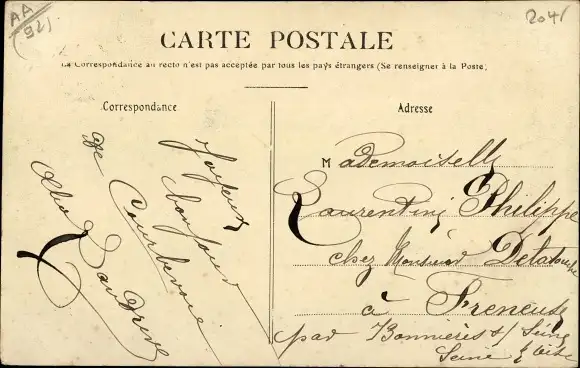 AA
921
2041
CARTE POSTALE
La Correspondance au recto n'est pas acceptée par tous les pays étrangers (Se renseigner à la Poste)
Correspondance
Joyeux
bonjour
Courbevoie
Adresse
Mademoiselle
Laurentine Philippe
chez Monsieur
à Freneuse
par Bonnières s/ Seine
Seine & Oise